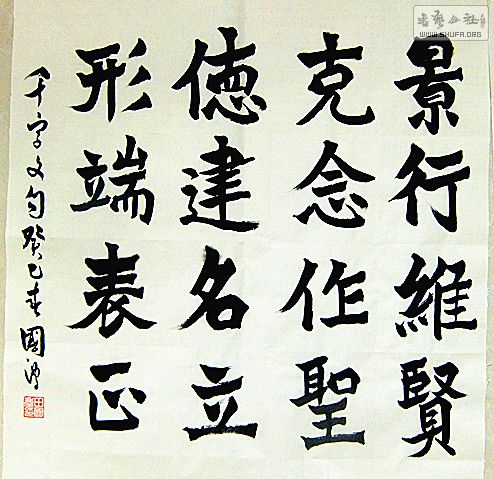 景行維賢
克念作聖
徳建名立
形端表正
千字文句癸巳春國
書藝公社
WWW.SHUFA.ORG